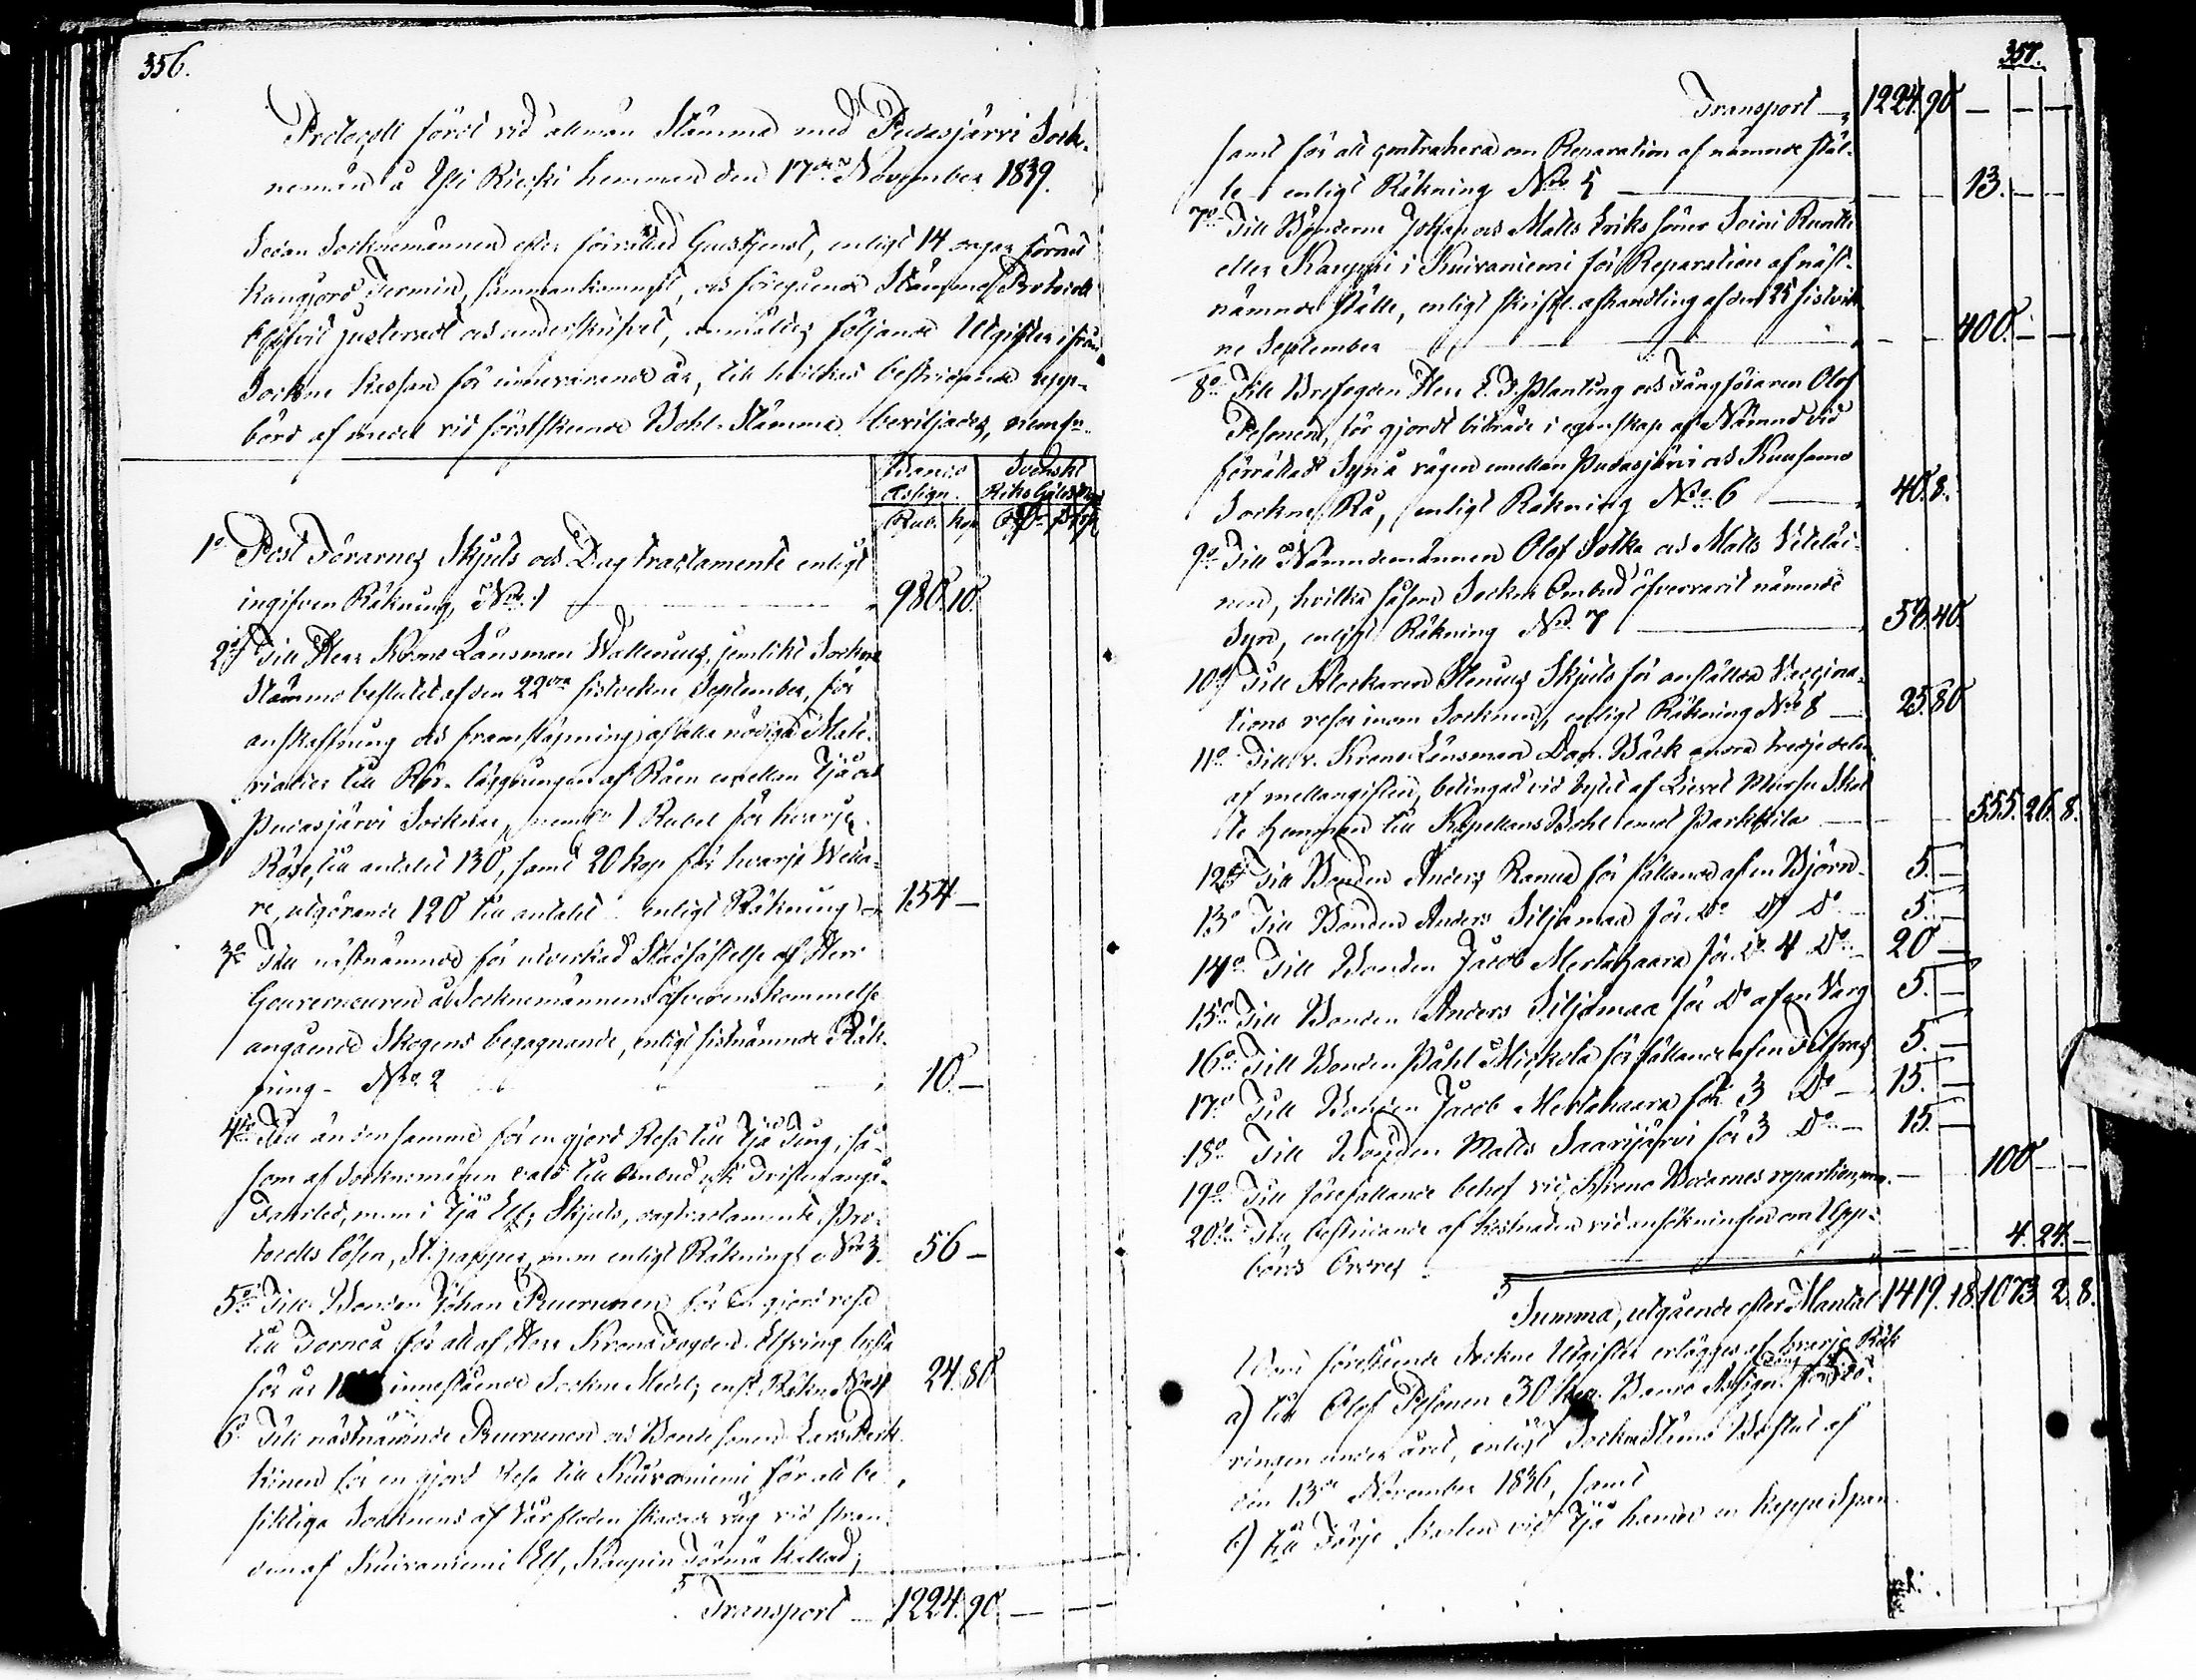 356.
Protocoll fördt vid allmän Stämma med Pudasjärvi Sock-
nemän å Yli Rieski hemman den 17de November 1839.
Sedan Socknemännen efter förrättad Gudstjenst, enligt 14 dagar förut
kungjord Termin, sammankommit, och föregående Stämmo Protocoll
blifvit justeradt och underskrifvet, anmältes följande Utgifter ifrån
Sockne Kassan för innevarande år, till hvilkas bestridande upp-
börd af medel vid förestående Bohl-Stämma beviljades, nemln.
Banco Assign. Svenskt Riks Gälds
Rub. kop
1o Post Förarnes Skjuts och Dag tractamente enligt
ingifven Räkning, No. 1 980. 10.
2o Till Herr Krono Länsman Wallenius, jemlikt Sockne
Stämmo beslutet af den 22dra sistvekne September, för
anskaffning och framsläpning af alla nödiga Mate-
rialier till Rör-läggningen af Råen emellan Ijå och
Pudasjärvi Socknar, neml. 1 Rubel för hvarje
Röse, till antalet 130, samt 20 kop för hvarje
re, utgörande 120 till antalet enligt Räkning 154 —
3o Till nästnämnde för utverkad Stadfästelse af Herr
Gouverneuren å Socknemännens öfverenskommelse
angående Skogens begagnande, enligt sistnämnde Räk-
ning - No. 2 10. —
4o Till än den samme för en gjord Resa till Ijå Ting, så-
som af Socknemännen vald till Ombud
i Ijå Elf, Skjuts, dagtractamente, Pro-
tocolls lösen, St. papper, m.m enligt Räkning No 3. 56 —
5o Till Bonden Johan Puurunen för en gjord resa
till Torneå för att af Herr Krono Fogden Elfving lyfta
för år innestående Sockne Medel, enl. Räkn. No 4 24. 80
6o Till nästnämnde Puurunen och Bonde sonen Lars
kinen för en gjord Resa till Kuivaniemi för att be-
sigtiga Socknens af Vårfloden skadade väg vid stran-
den af Kuivaniemi Elf, Kaupin Törmä kallad;
Transport 1224. 90. — — —
357.
Transport — 1224. 90 — — —
samt för att contrahera om Reparation af nämnde stäl-
le enligt Räkning No. 5 13. — —
7o Till Bönderne Johan och Matts Eriks söner Soini Runtti
eller Kauppi i Kuivaniemi för Reparation af näst-
nämnde ställe, enligt skriftl. afhandling af den 25 sistvik-
ne September 400. — —
8o Till Brofogden Herr E. J. Planting och Tungföraren Olof
Pesonen, för gjordt biträde i egenskap af Nämnd vid
förrättad Syn å vägen emellan Pudasjärvi och Kuusamo
Sockne Rå, enligt Räkning No. 6 40. 8.
9o Till Nämndemännen Olof Sotka och Matts
nen, hvilka såsom Sockne Ombud öfvervarit nämnde
Syn, enligt Räkning No. 7 58. 40
10o Till Klockaren Stenius Skjuts för anställda Vaccina-
tions resor inom Socknen, enligt Räkning No 8 — 25. 80
11o Till v. Krono Länsman Dan. Bäck andra tredjedelen
af mellangiften, betingad vid bytet af Lievet Mursu Skat-
te hemman till Kapellans Bohl emot Parkkila 555. 26. 8.
12o Till Bonden Anders Ranua för fällande af en Björn 5. —
13o Till Bonden Anders Siljamaa för Do Do 5. —
14o Till Bonden Jacob Mertahaara för Do 4 Do 20 —
15o Till Bonden Anders Siljamaa för Do af en Varg 5. —
16o Till Bonden Påhl Mickola för fällande af en Filfras 5. —
17o Till Bonden Jacob Mertahaara för 3 Do — 15. —
18o Till Bonden Matts Saarijärvi för 3 Do — 15. —
19o Till förefallande behof vid Krono Bodarnes reparation, m.m. 100 — —
20o Till bestridande af kostnaden vid ansökningen om Upp-
börds 4. 24. —
Summa, utgående efter Mantal 1419. 18. 1073 2. 8.
Utom förestående Sockne Utgifter erlägges af hvarje Rök
a) till Olof Pesonen 30 kop. Banco Assign. för
ringen under året, enligt Sockne Stämo Beslut af
den 13de November 1836, samt
b) till Färje Karlen vid Ijå hamn en kappe Span.